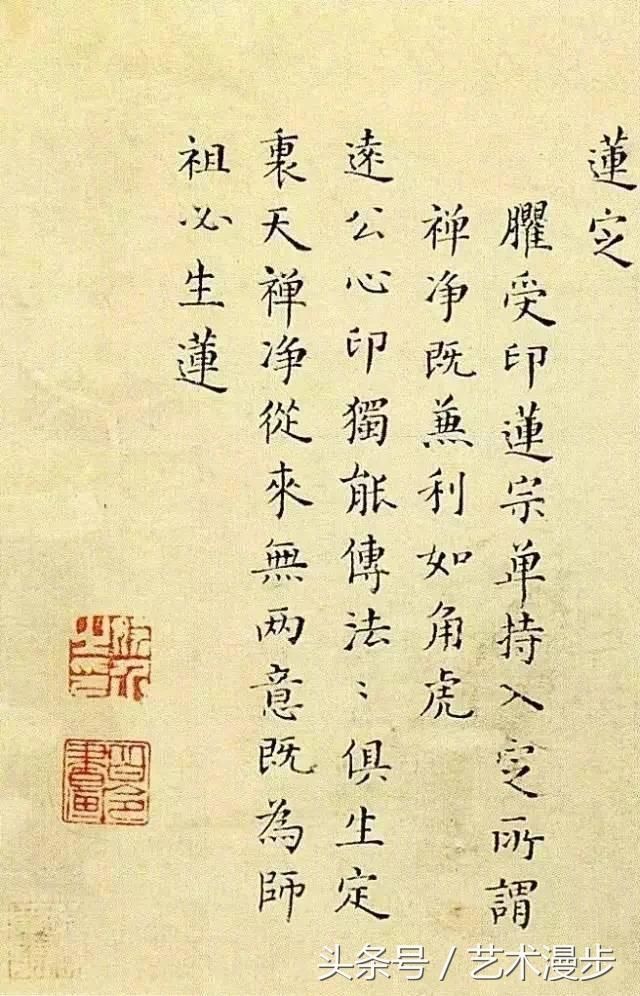 蓮定
臞受印蓮宗单持入定所謂
禅净既兼利如角虎
遠公心印獨能傳法〻俱生定
裏天禅净從來無两意既為師
祖必生蓮
头条号／艺术漫步